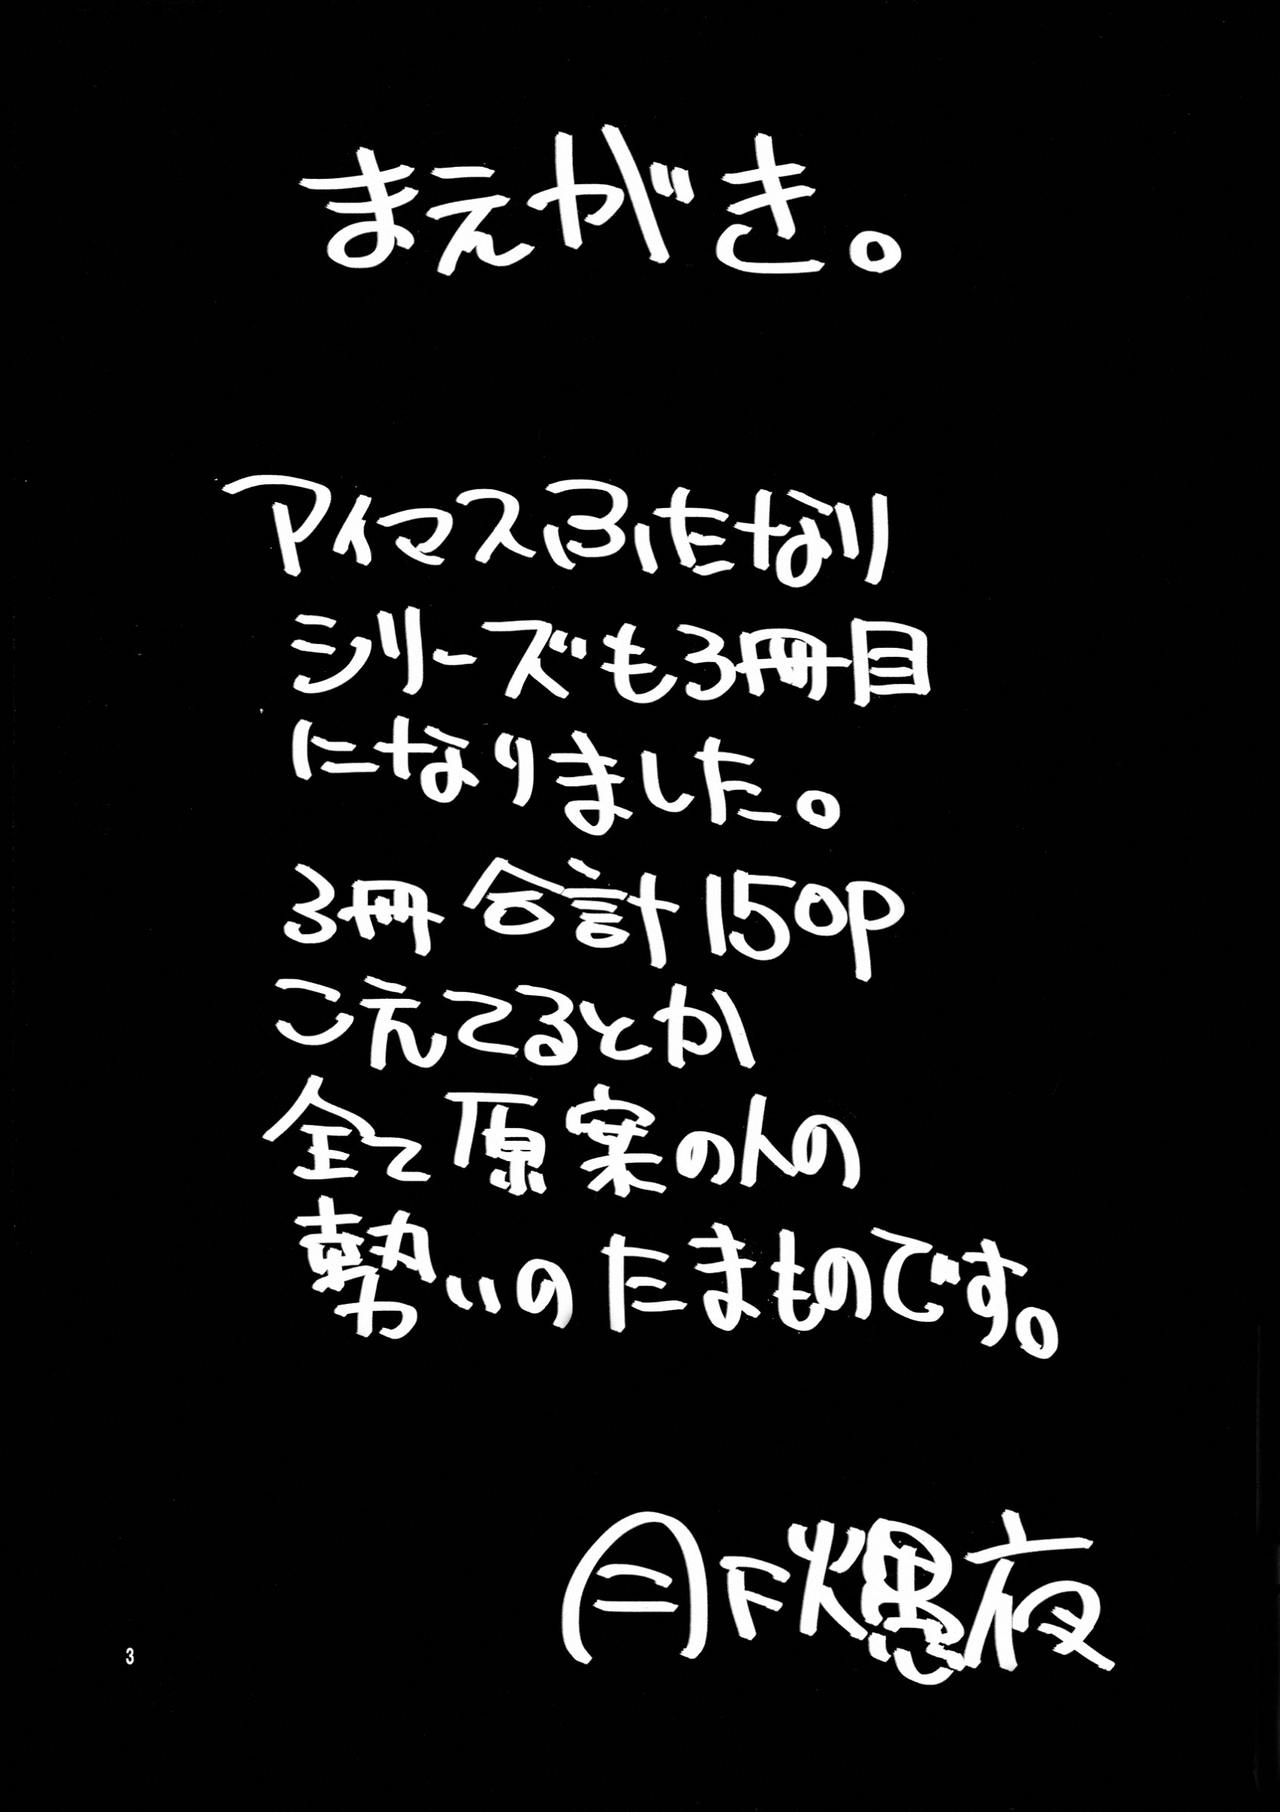 まえがき。
アイマスふたなり
シリーズも3冊目
になりました。
3冊合計150P
こえてるとか
全て原案の人の
勢いのたまものです。
月下燻夜
3